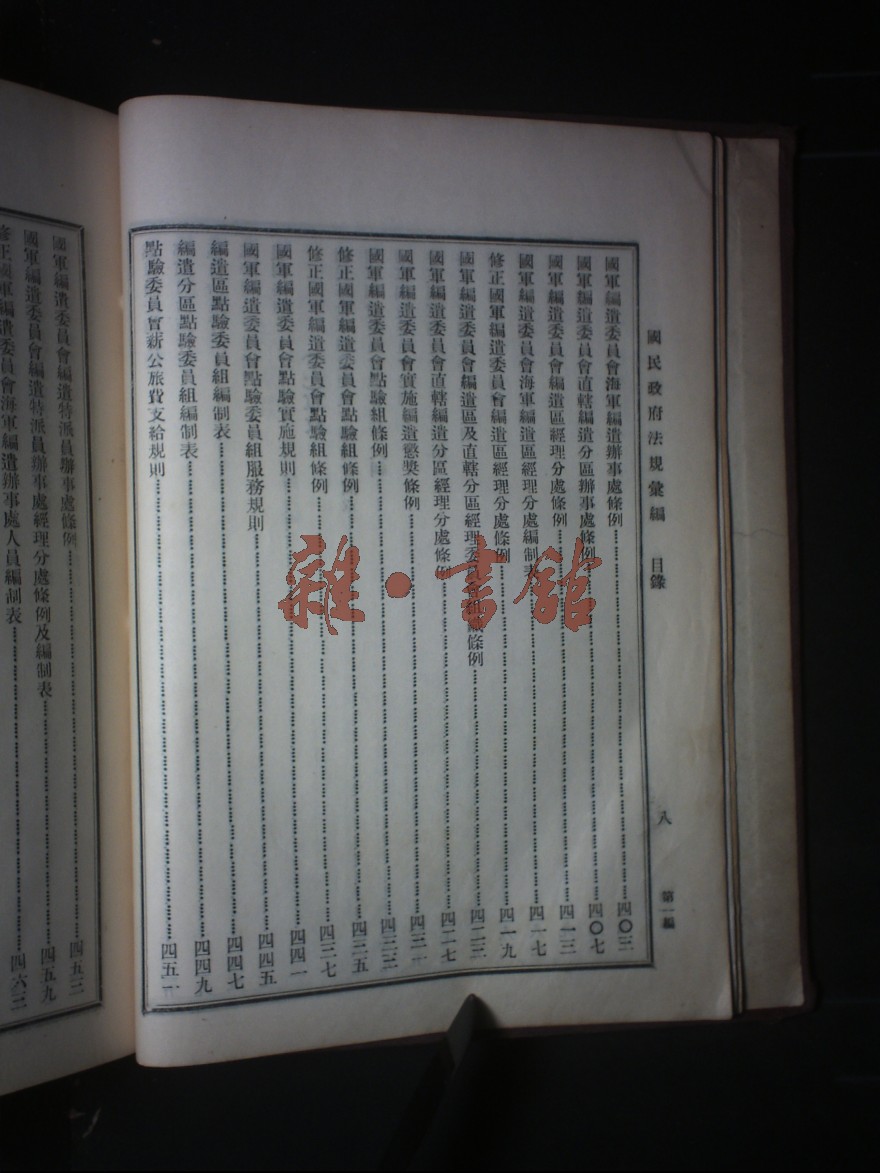 國民政府法規彙編 目錄 八 第一編
國軍編遣委員會海軍編遣辦事處條例 四〇三
國軍編遣委員會直轄編遣分區辦事處條例 四〇七
國軍編遣委員會編遣區經理分處條例 四一三
國軍編遣委員會海軍編遣區經理分處編制表 四一七
修正國軍編遣委員會編遣區經理分處條例 四一九
國軍編遣委員會編遣區及直轄分區經理委員會組織條例 四二三
國軍編遣委員會直轄編遣分區經理分處條例 四二七
國軍編遣委員會實施編遣懲獎條例 四三一
國軍編遣委員會點驗組條例 四三三
修正國軍編遣委員會點驗組條例 四三五
修正國軍編遣委員會點驗組條例 四三七
國軍編遣委員會點驗實施規則 四四一
國軍編遣委員會點驗委員組服務規則 四四五
編遣區點驗委員組編制表 四四七
編遣分區點驗委員組編制表 四四九
點驗委員會薪公旅費支給規則 四五一
國軍編遣委員會編遣特派員辦事處條例 四五三
國軍編遣委員會編遣特派員辦事處經理分處條例及編制表 四五九
修正國軍編遣委員會海軍編遣辦事處人員編制表 四六三
雜·書館